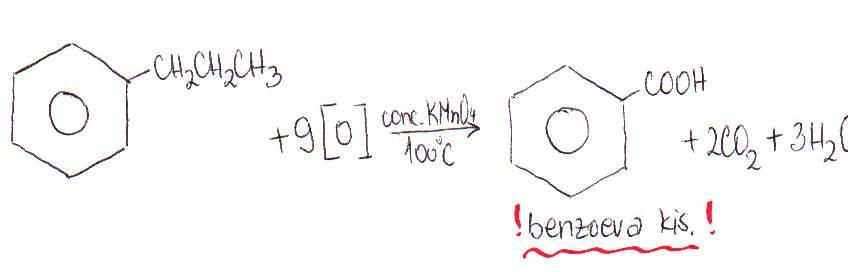 CH₂CH₂CH₃
+9[O] conc. KMnO₄
100°C
COOH
+ 2CO₂ + 3H₂O
! benzoeva kis. !